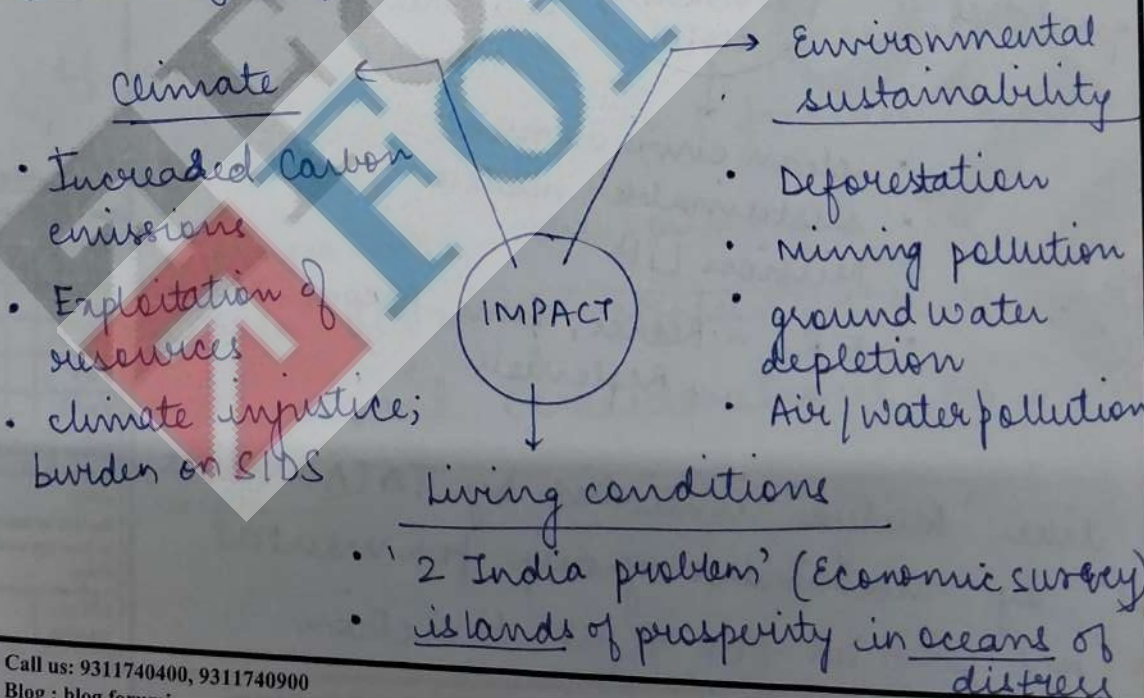 Climate
• Increased Carbon
emissions
• Exploitation of
resources
• climate injustice;
burden on SIDS
Environmental
sustainability
• Deforestation
• Mining pollution
• ground water
depletion
• Air/water pollution
IMPACT
Living conditions
• '2 India problem' (Economic survey)
• islands of prosperity in oceans of
distress
Call us: 9311740400, 9311740900
Blog : blog.forum